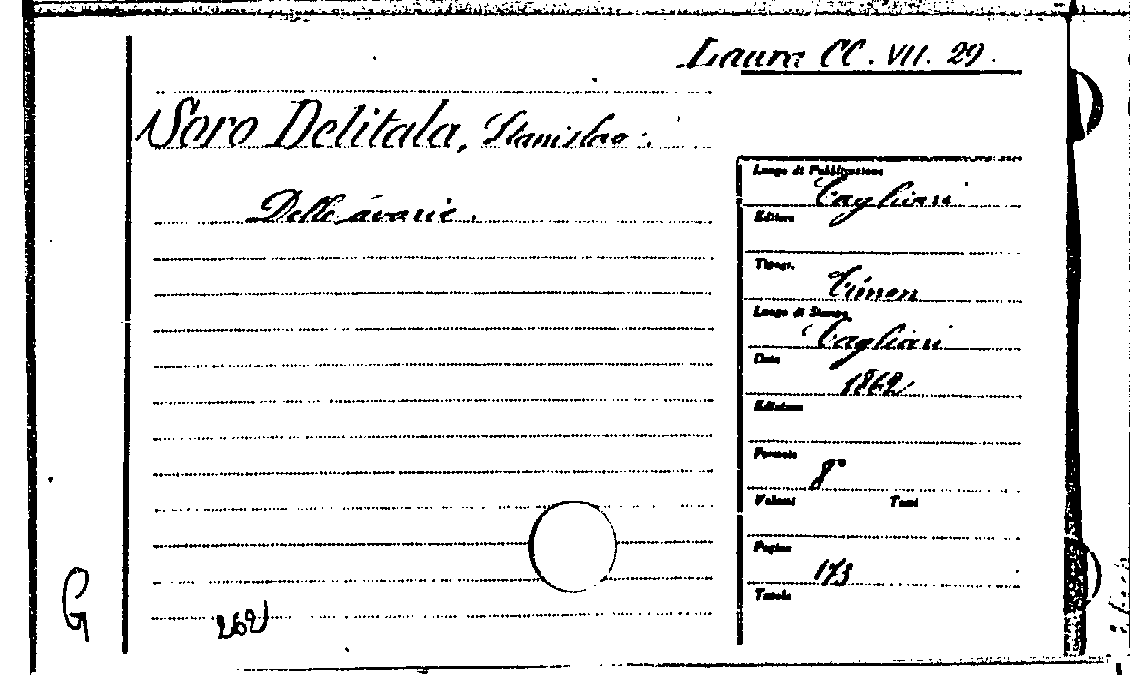 Laura CC. VII. 29.
Soro Delitala, Stanislao.
Delle avarie.
Luogo di Pubblicazione
Cagliari
Editore
Tipogr.
Timon
Luogo di Stampa
Cagliari
Data
1862
Edizione
Formato
8°
Volumi Tomi
Pagine
173
Tavole
G
262